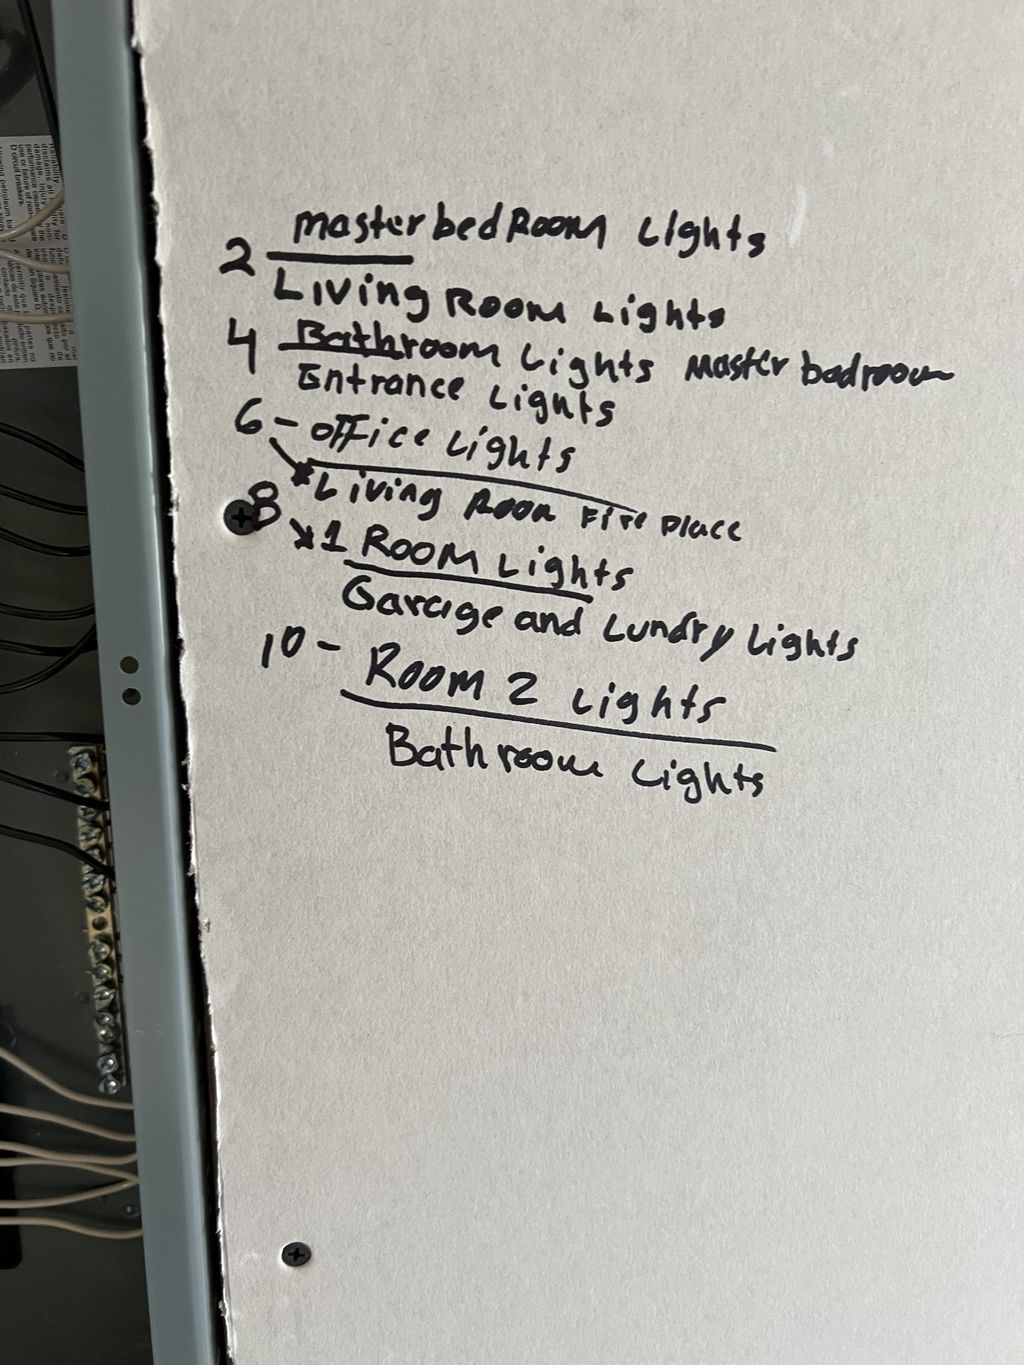 master bedROOM Lights
2
Living ROOM Lights
4 Bathroom Lights Master bedroom
Entrance Lights
6 - office Lights
Living Room Fire place
8
1 ROOM Lights
Garage and Lundry Lights
10 - Room 2 Lights
Bathroom Lights